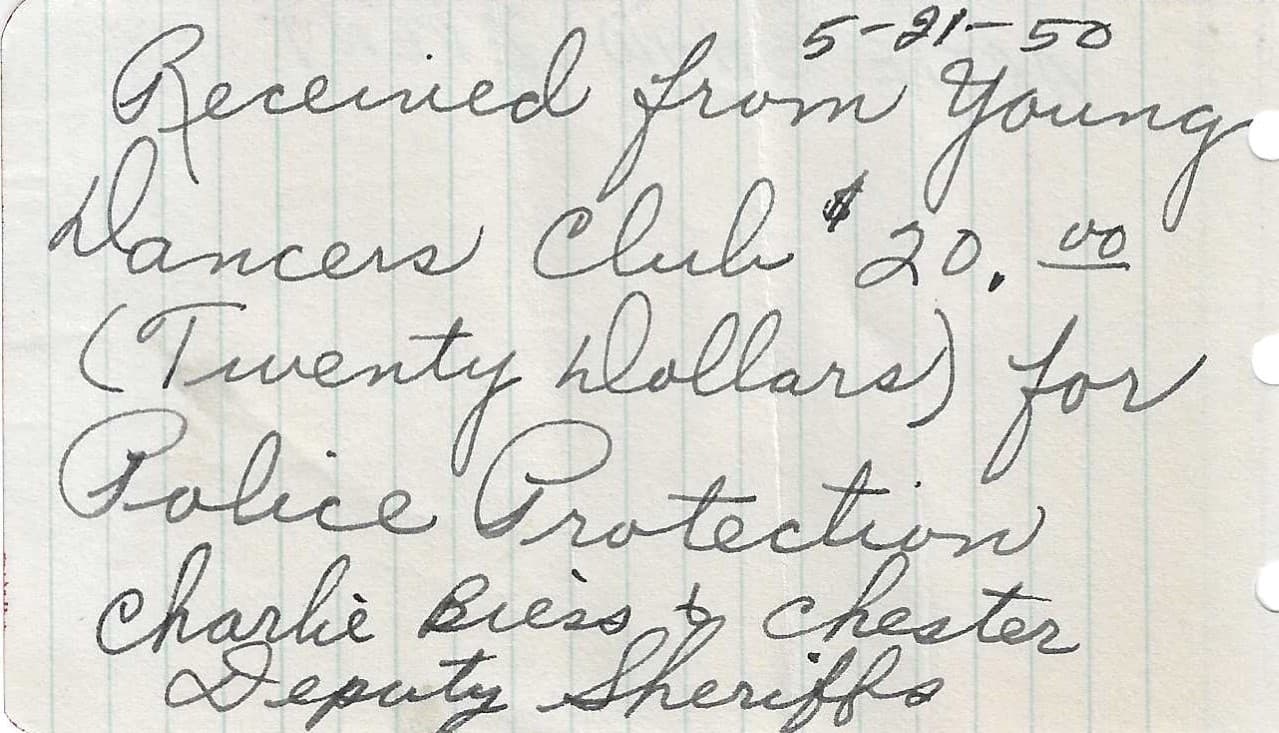 5-21-50
Received from Young
Dancers Club $20.00
(Twenty Dollars) for
Police Protection
Charlie Biess & Chester
Deputy Sheriffs